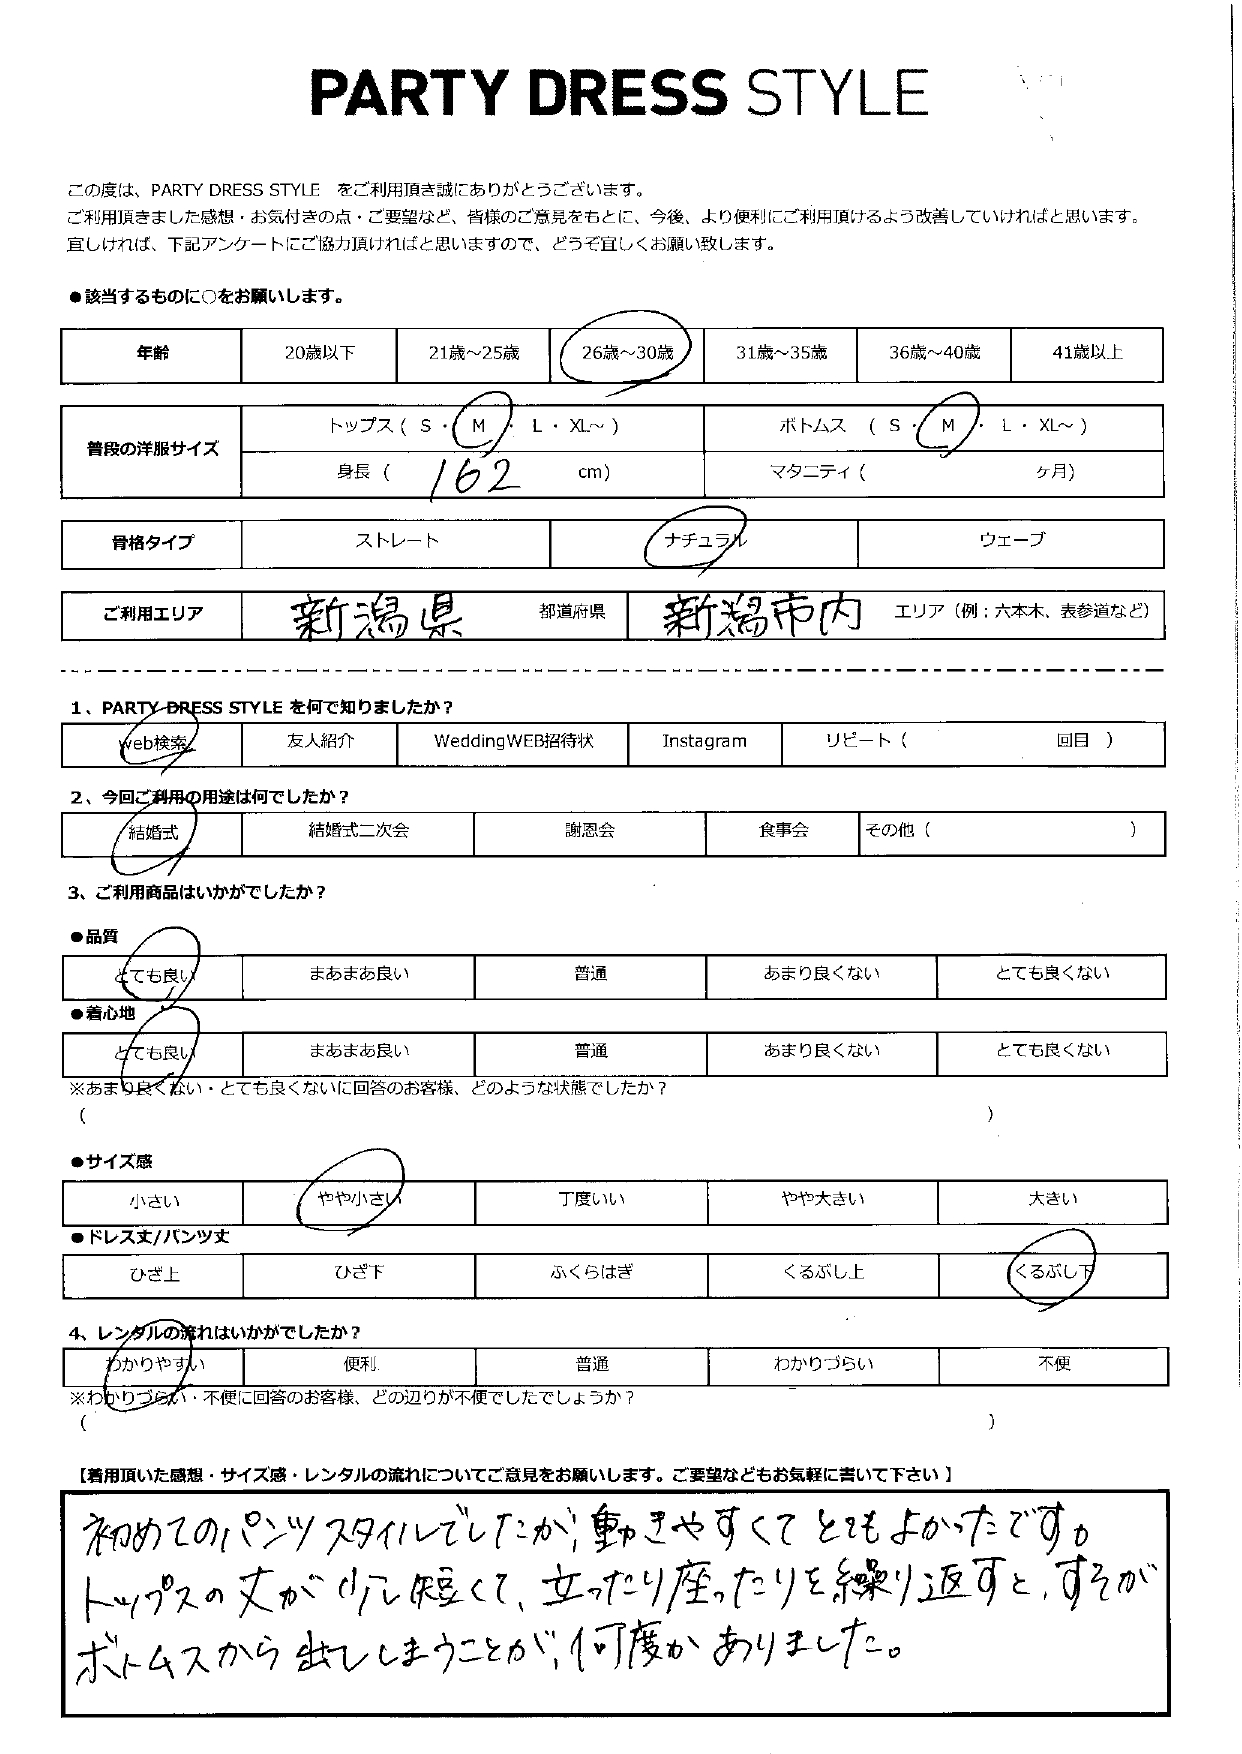 PARTY DRESS STYLE
この度は、PARTY DRESS STYLE をご利用頂き誠にありがとうございます。
ご利用頂きました感想・お気付きの点・ご要望など、皆様のご意見をもとに、今後、より便利にご利用頂けるよう改善していければと思います。
宜しければ、下記アンケートにご協力頂ければと思いますので、どうぞ宜しくお願い致します。
●該当するものに○をお願いします。
年齢 20歳以下 21歳～25歳 26歳～30歳 31歳～35歳 36歳～40歳 41歳以上
普段の洋服サイズ
トップス ( S ・ M ・ L ・ XL～ ) ボトムス ( S ・ M ・ L ・ XL～ )
身長 ( 162 cm) マタニティ ( ヶ月)
骨格タイプ ストレート ナチュラル ウェーブ
ご利用エリア 新潟県 都道府県 新潟市内 エリア（例；六本木、表参道など）
1、PARTY DRESS STYLE を何で知りましたか？
web検索 友人紹介 WeddingWEB招待状 Instagram リピート ( 回目 )
2、今回ご利用の用途は何でしたか？
結婚式 結婚式二次会 謝恩会 食事会 その他 ( )
3、ご利用商品はいかがでしたか？
●品質
とても良い まあまあ良い 普通 あまり良くない とても良くない
●着心地
とても良い まあまあ良い 普通 あまり良くない とても良くない
※あまり良くない・とても良くないに回答のお客様、どのような状態でしたか？
( )
●サイズ感
小さい やや小さい 丁度いい やや大きい 大きい
●ドレス丈/パンツ丈
ひざ上 ひざ下 ふくらはぎ くるぶし上 くるぶし下
4、レンタルの流れはいかがでしたか？
わかりやすい 便利 普通 わかりづらい 不便
※わかりづらい・不便に回答のお客様、どの辺りが不便でしたでしょうか？
( )
【着用頂いた感想・サイズ感・レンタルの流れについてご意見をお願いします。ご要望などもお気軽に書いて下さい】
初めてのパンツスタイルでしたが、動きやすくてとてもよかったです。
トップスの丈が少し短くて、立ったり座ったりを繰り返すと、すそが
ボトムスから出てしまうことが、何度かありました。